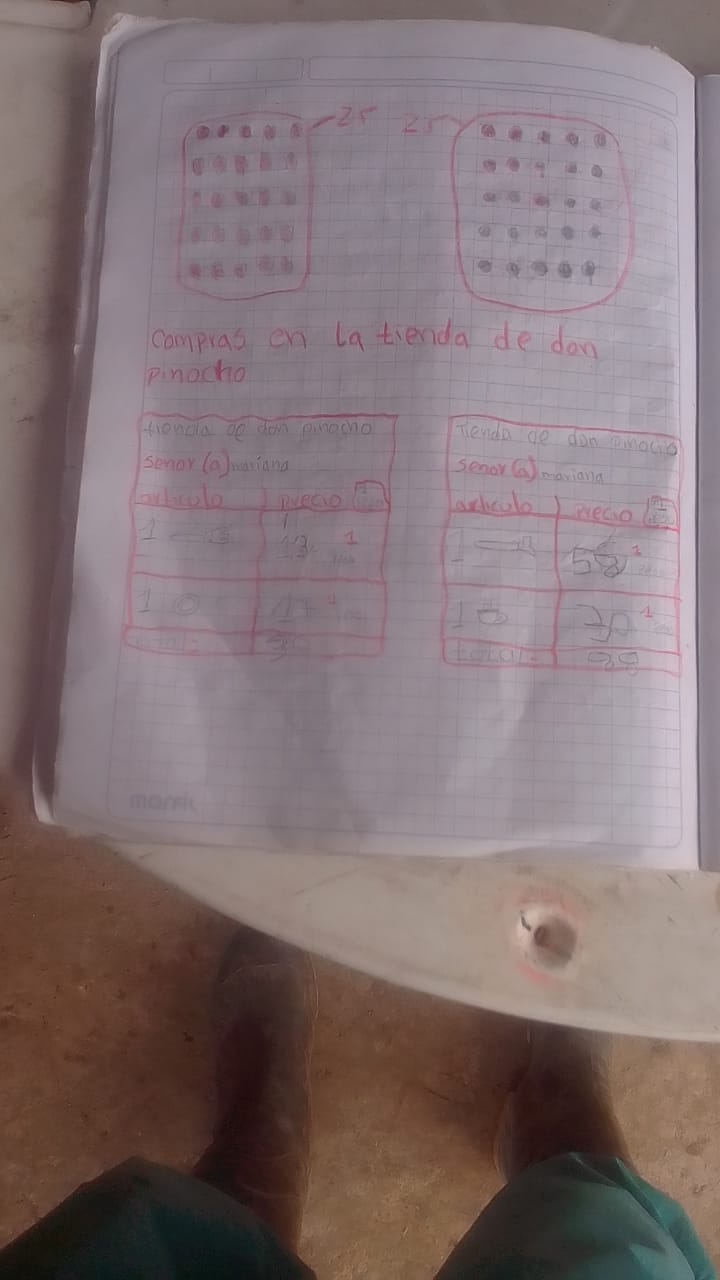 25 25
Compras en la tienda de don
pinocho
tienda de don pinocho
señor (a) mariana
artículo precio
1 13 1
1 17 1
total=
Tienda de don pinocho
señor (a) mariana
artículo precio
1 58 1
1 30 1
total=
marfil